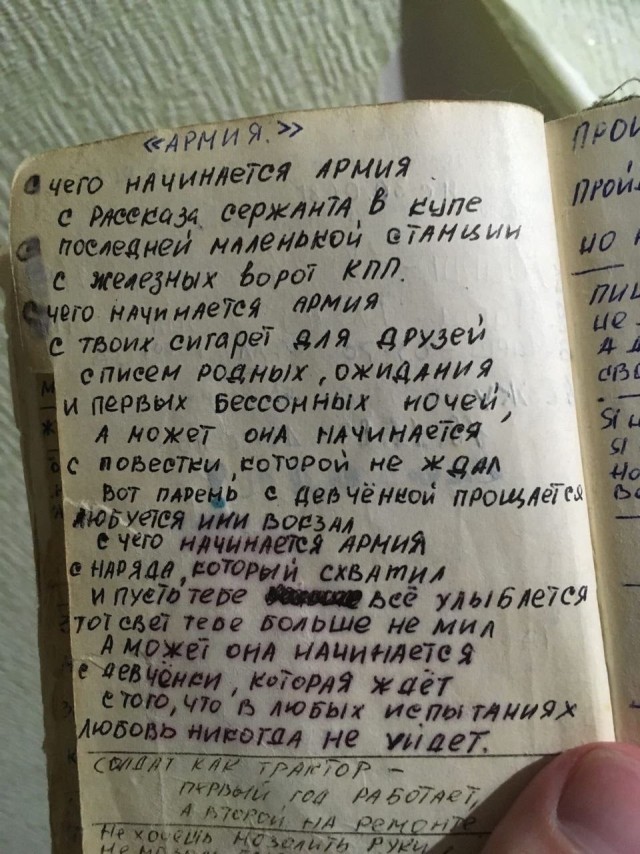 «АРМИЯ.»
С чего НАЧИНАЕТСЯ АРМИЯ
С РАССКАЗА СЕРЖАНТА В КУПЕ
С ПОСЛЕДНЕЙ МАЛЕНЬКОЙ СТАНЦИИ
С ЖЕЛЕЗНЫХ ВОРОТ КПП.
С ЧЕГО НАЧИНАЕТСЯ АРМИЯ
С ТВОИХ СИГАРЕТ ДЛЯ ДРУЗЕЙ
С ПИСЕМ РОДНЫХ, ОЖИДАНИЯ
И ПЕРВЫХ БЕССОННЫХ НОЧЕЙ,
А МОЖЕТ ОНА НАЧИНАЕТСЯ
С ПОВЕСТКИ, КОТОРОЙ НЕ ЖДАЛ
ВОТ ПАРЕНЬ С ДЕВЧЁНКОЙ ПРОЩАЕТСЯ
ЛЮБУЕТСЯ ИМИ ВОКЗАЛ
С ЧЕГО НАЧИНАЕТСЯ АРМИЯ
С НАРЯДА, КОТОРЫЙ СХВАТИЛ
И ПУСТЬ ТЕБЕ ВСЁ УЛЫБАЕТСЯ
ЭТОТ СВЕТ ТЕБЕ БОЛЬШЕ НЕ МИЛ
А МОЖЕТ ОНА НАЧИНАЕТСЯ
С ДЕВЧЁНКИ, КОТОРАЯ ЖДЁТ
С ТОГО, ЧТО В ЛЮБЫХ ИСПЫТАНИЯХ
ЛЮБОВЬ НИКОГДА НЕ УЙДЕТ.
СОЛДАТ КАК ТРАКТОР –
ПЕРВЫЙ ГОД РАБОТАЕТ,
А ВТОРОЙ НА РЕМОНТЕ
НЕ ХОЧЕШЬ МОЗОЛИТЬ РУКИ,
НО
НЕ
А
SI